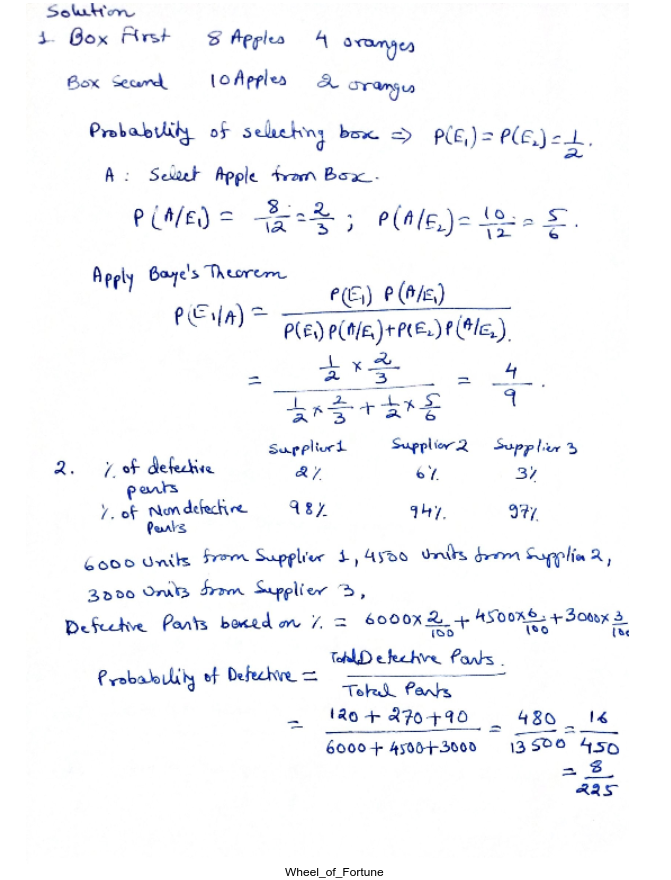 Solution
1. Box First 8 Apples 4 oranges
Box Second 10 Apples 2 oranges
Probability of selecting box => P(E₁) = P(E₂) = 1/2.
A : Select Apple from Box.
P(A/E₁) = 8/12 = 2/3 ; P(A/E₂) = 10/12 = 5/6.
Apply Baye's Theorem
P(E₁/A) = P(E₁) P(A/E₁) / P(E₁) P(A/E₁) + P(E₂) P(A/E₂).
= 1/2 × 2/3 / 1/2 × 2/3 + 1/2 × 5/6 = 4/9.
Supplier 1 Supplier 2 Supplier 3
2. % of defective 2% 6% 3%
parts
% of Non defective 98% 94% 97%
Parts
6000 units from Supplier 1, 4500 units from Supplier 2,
3000 units from Supplier 3,
Defective Parts based on % = 6000 × 2/100 + 4500 × 6/100 + 3000 × 3/100
Probability of Defective = Total Defective Parts. / Total Parts
= 120 + 270 + 90 / 6000 + 4500 + 3000 = 480/13500 = 16/450
= 8/225
Wheel_of_Fortune